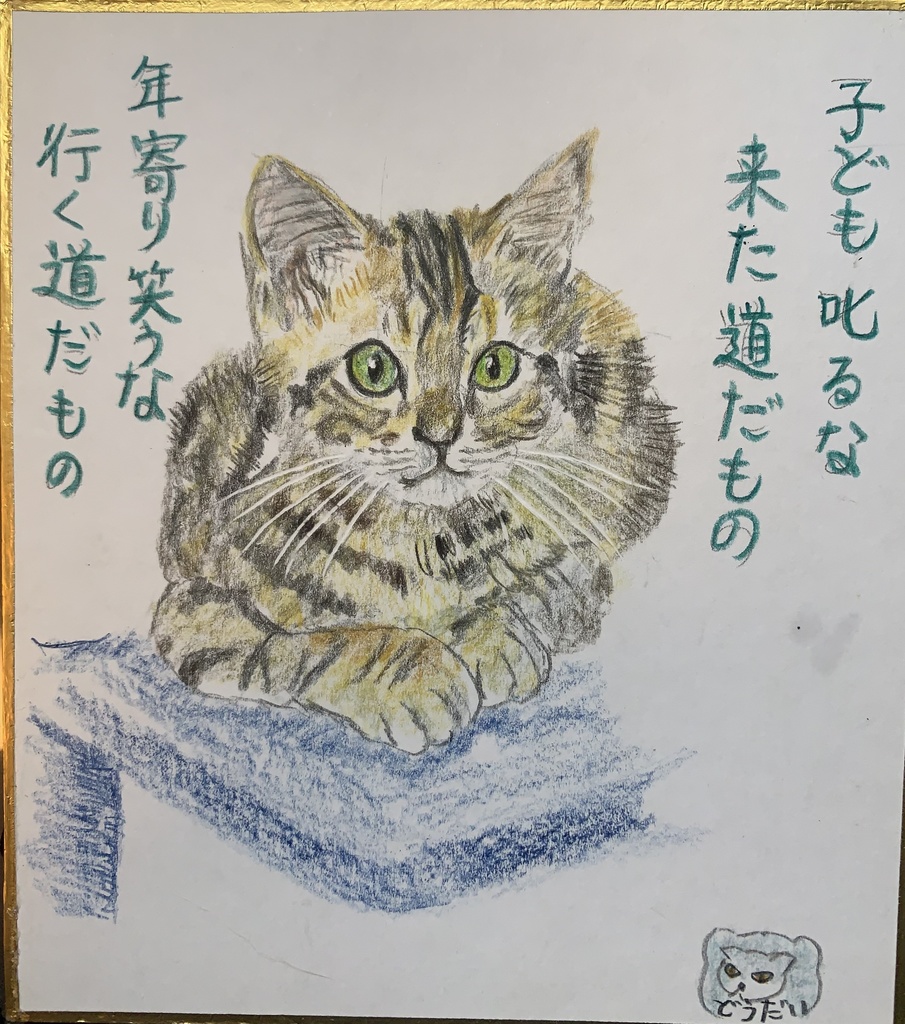 子ども叱るな
来た道だもの
年寄り笑うな
行く道だもの
どうだい